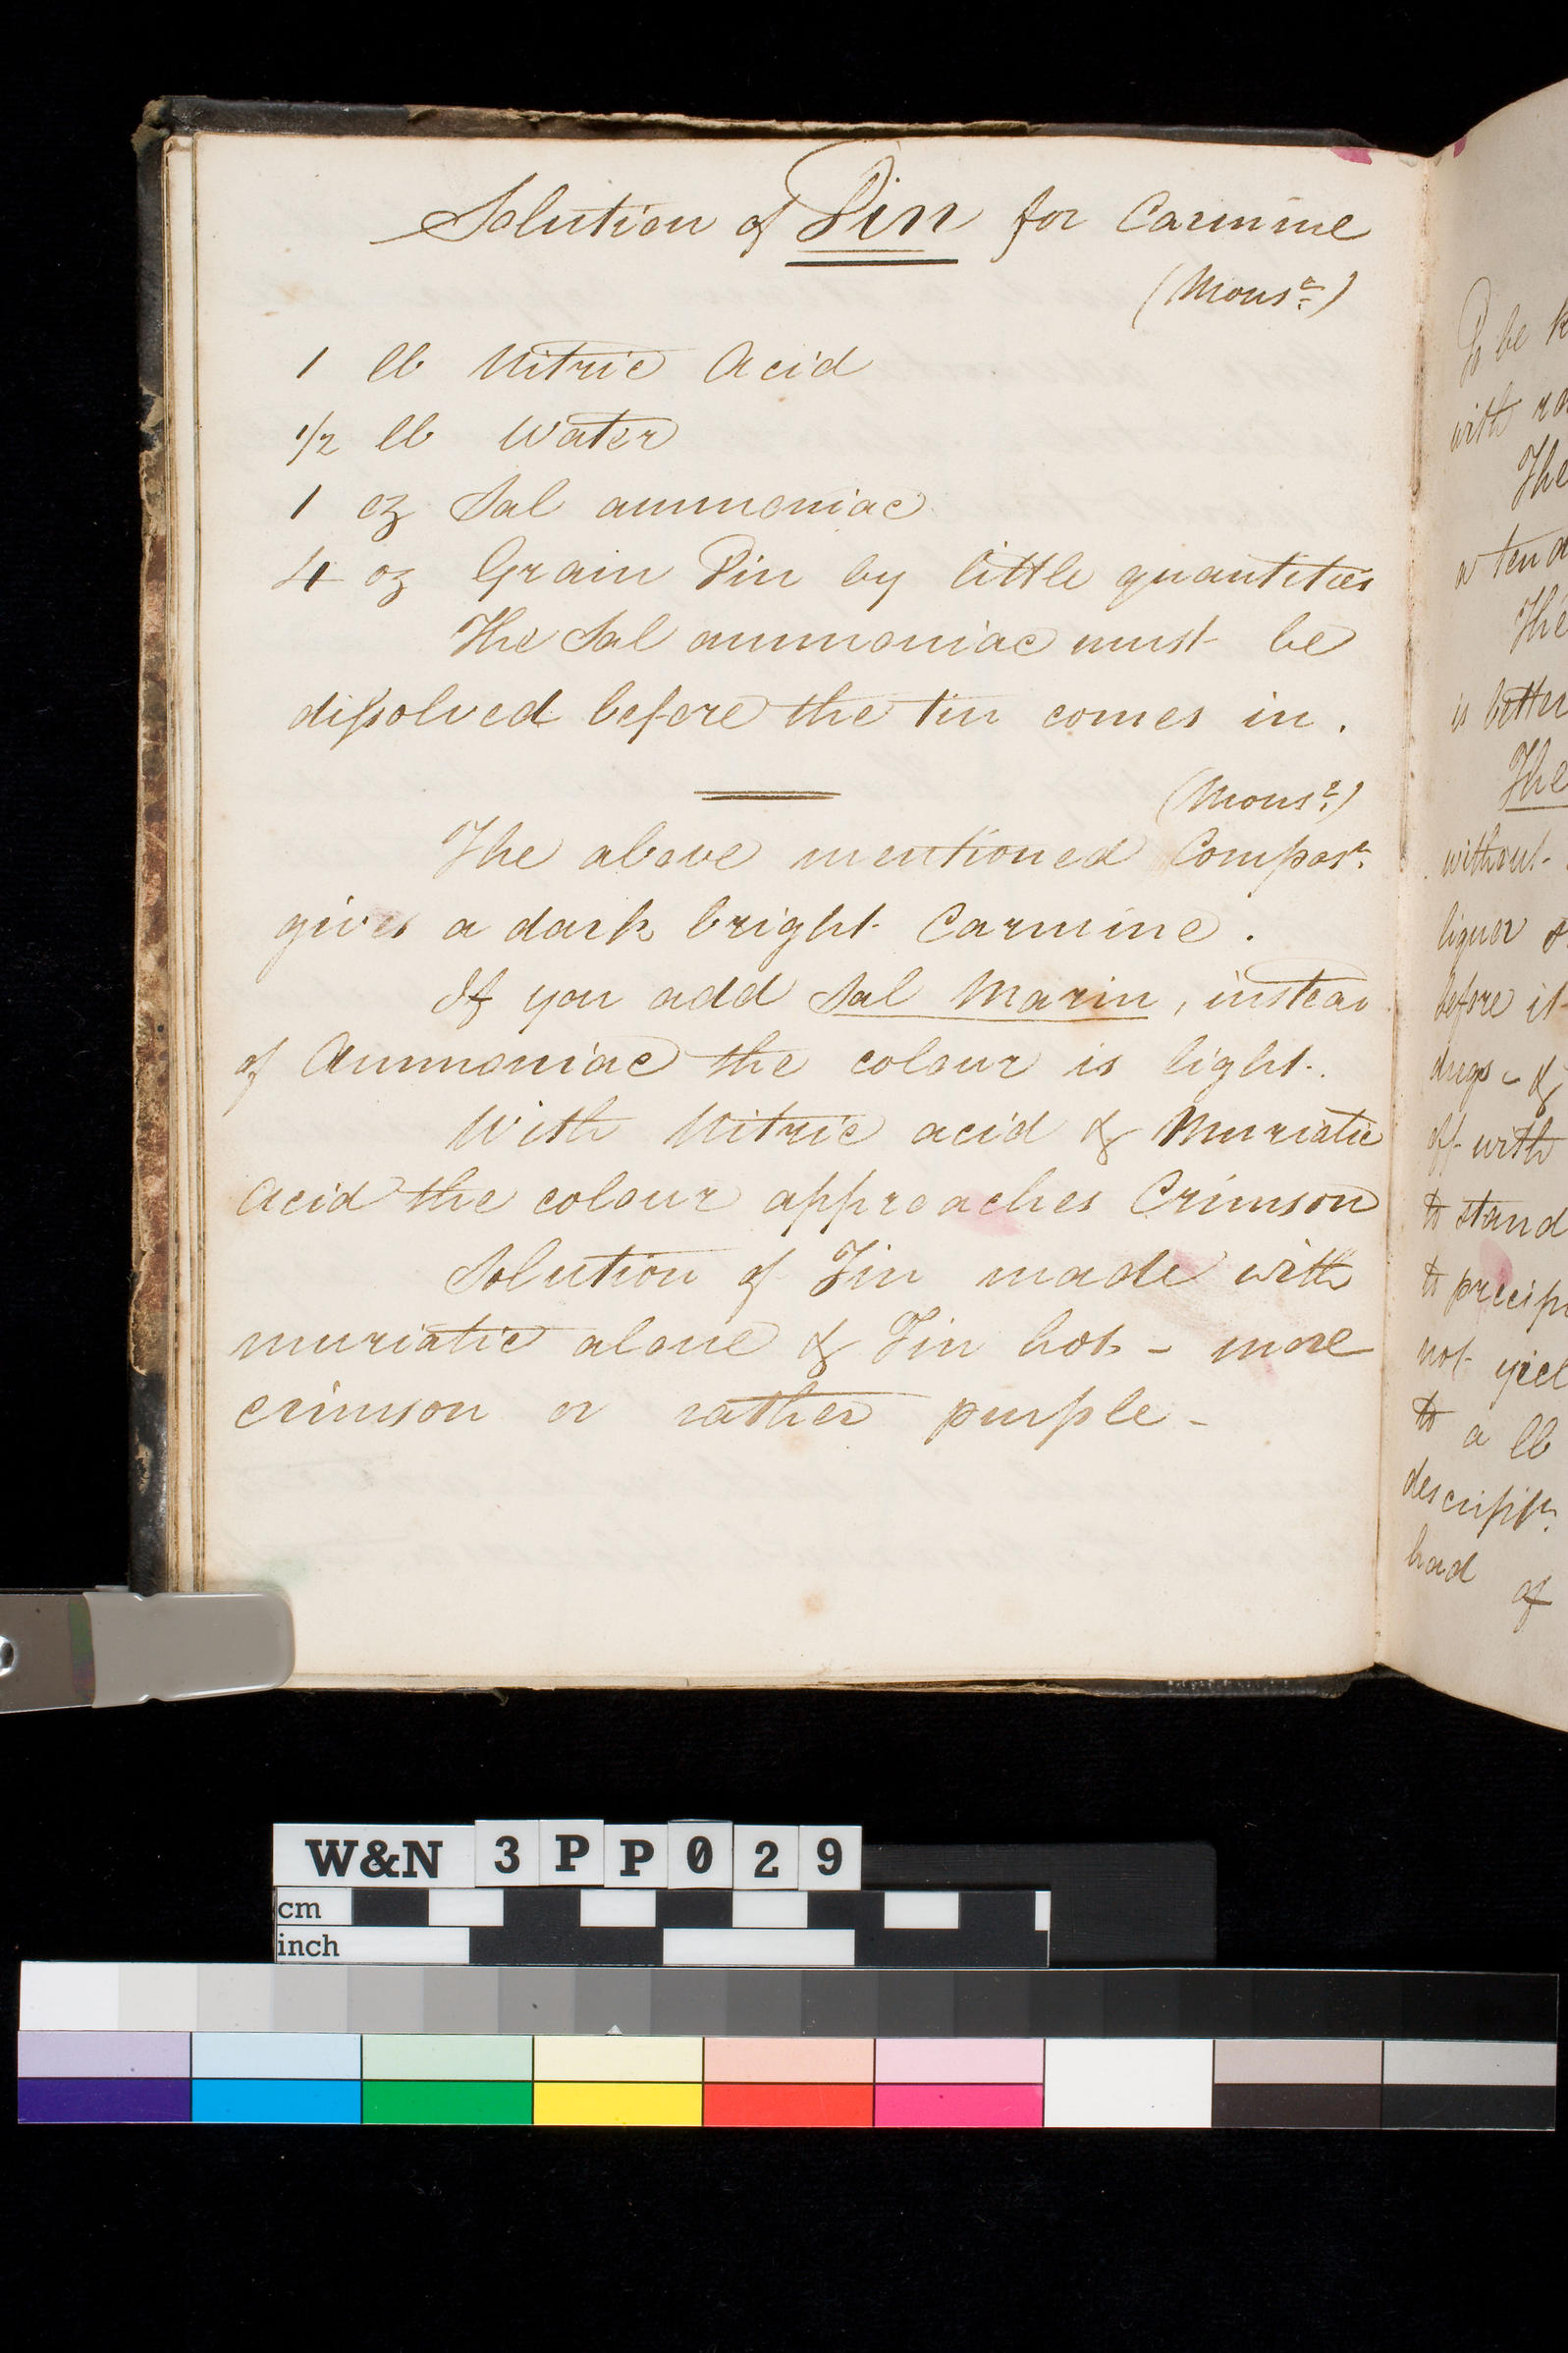 Solution of Tin for Carmine
(Monsr.)
1 lb Nitric Acid
1/2 lb Water
1 oz Sal ammoniac
4 oz Grain Tin by little quantities
The Sal ammoniac must be
dissolved before the tin comes in.
(Monsr.)
The above mentioned Composn.
gives a dark bright Carmine.
If you add Sal Marin, instead
of Ammoniac the colour is light.
With Nitric acid & Muriatic
Acid the colour approaches Crimson
Solution of Tin made with
muriatic alone & Tin hot - more
crimson or rather purple -
To be
with
The
a
The
is better
The
without
liquor
before it
dregs - &
off with
to stand
to
not
to a lb
had of
W&N 3PP029
cm
inch